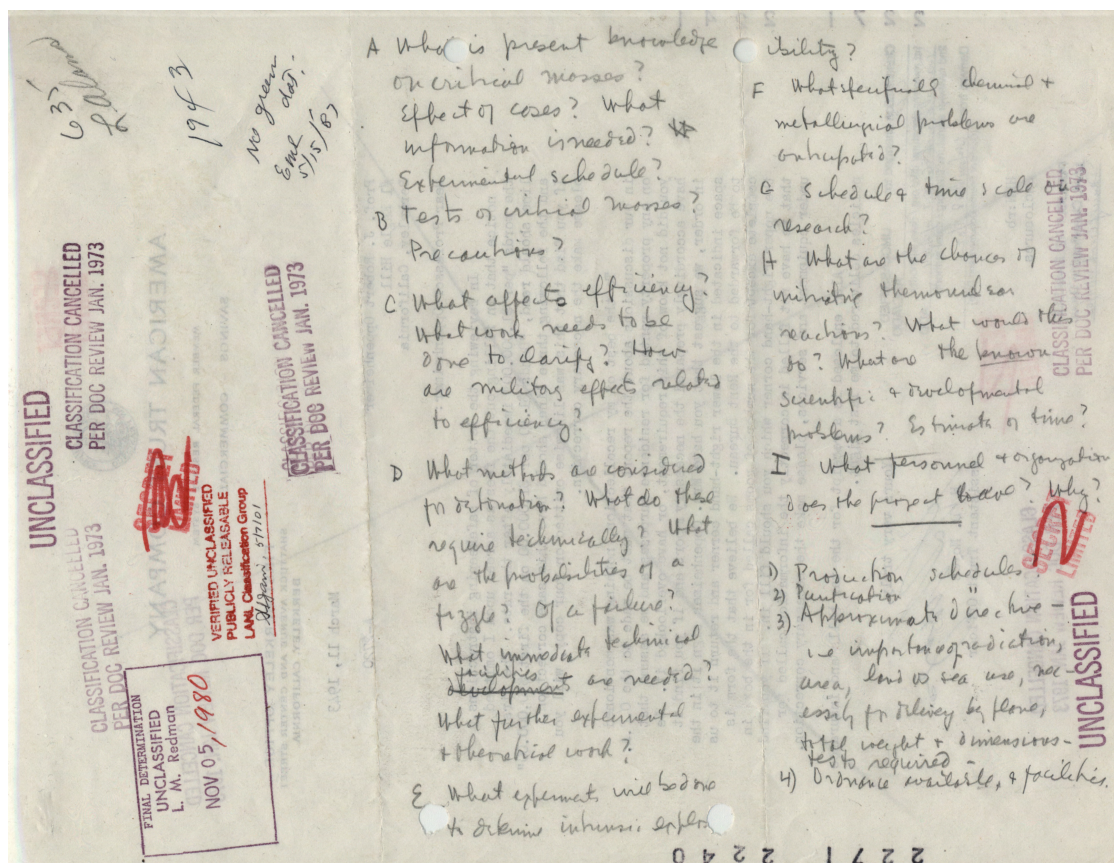 635
Lalamos
1943
No green
dot.
EMR
5/15/87
CLASSIFICATION CANCELLED
PER DOC REVIEW JAN. 1973
CLASSIFICATION CANCELLED
PER DOC REVIEW JAN. 1973
UNCLASSIFIED
CLASSIFICATION CANCELLED
PER DOC REVIEW JAN. 1973
SECRET
LIMITED
VERIFIED UNCLASSIFIED
PUBLICLY RELEASABLE
LANL Classification Group
5/7/01
FINAL DETERMINATION
UNCLASSIFIED
L. M. Redman
NOV 05, 1980
A What is present knowledge
on critical masses?
Effect of cases? What
information is needed?
Experimental schedule?
B Tests of critical masses?
Precautions?
C What affects efficiency?
What work needs to be
done to clarify? How
are military effects related
to efficiency?
D What methods are considered
for detonation? What do these
require technically? What
are the probabilities of a
fizzle? Of a failure?
What immediate technical
facilities
development are needed?
What further experimental
+ theoretical work?
E What experiments will be done
to determine intrinsic explos
ibility?
F What specifically chemical +
metallurgical problems are
anticipated?
G Schedule + time scale on
research?
H What are the chances of
initiating thermonuclear
reactions? What would this
do? What are the known
scientific + developmental
problems? Estimate of time?
I What personnel + organization
does the project have? Why?
1) Production schedules
2) Purification
3) Approximate directive -
i.e. importance of radiation,
area, land or sea use, nec-
essity for delivery by plane,
total weight + dimensions-
tests required -
4) Ordnance available, + facilities.
CLASSIFICATION CANCELLED
PER DOC REVIEW JAN. 1973
SECRET
LIMITED
UNCLASSIFIED
2271 2240